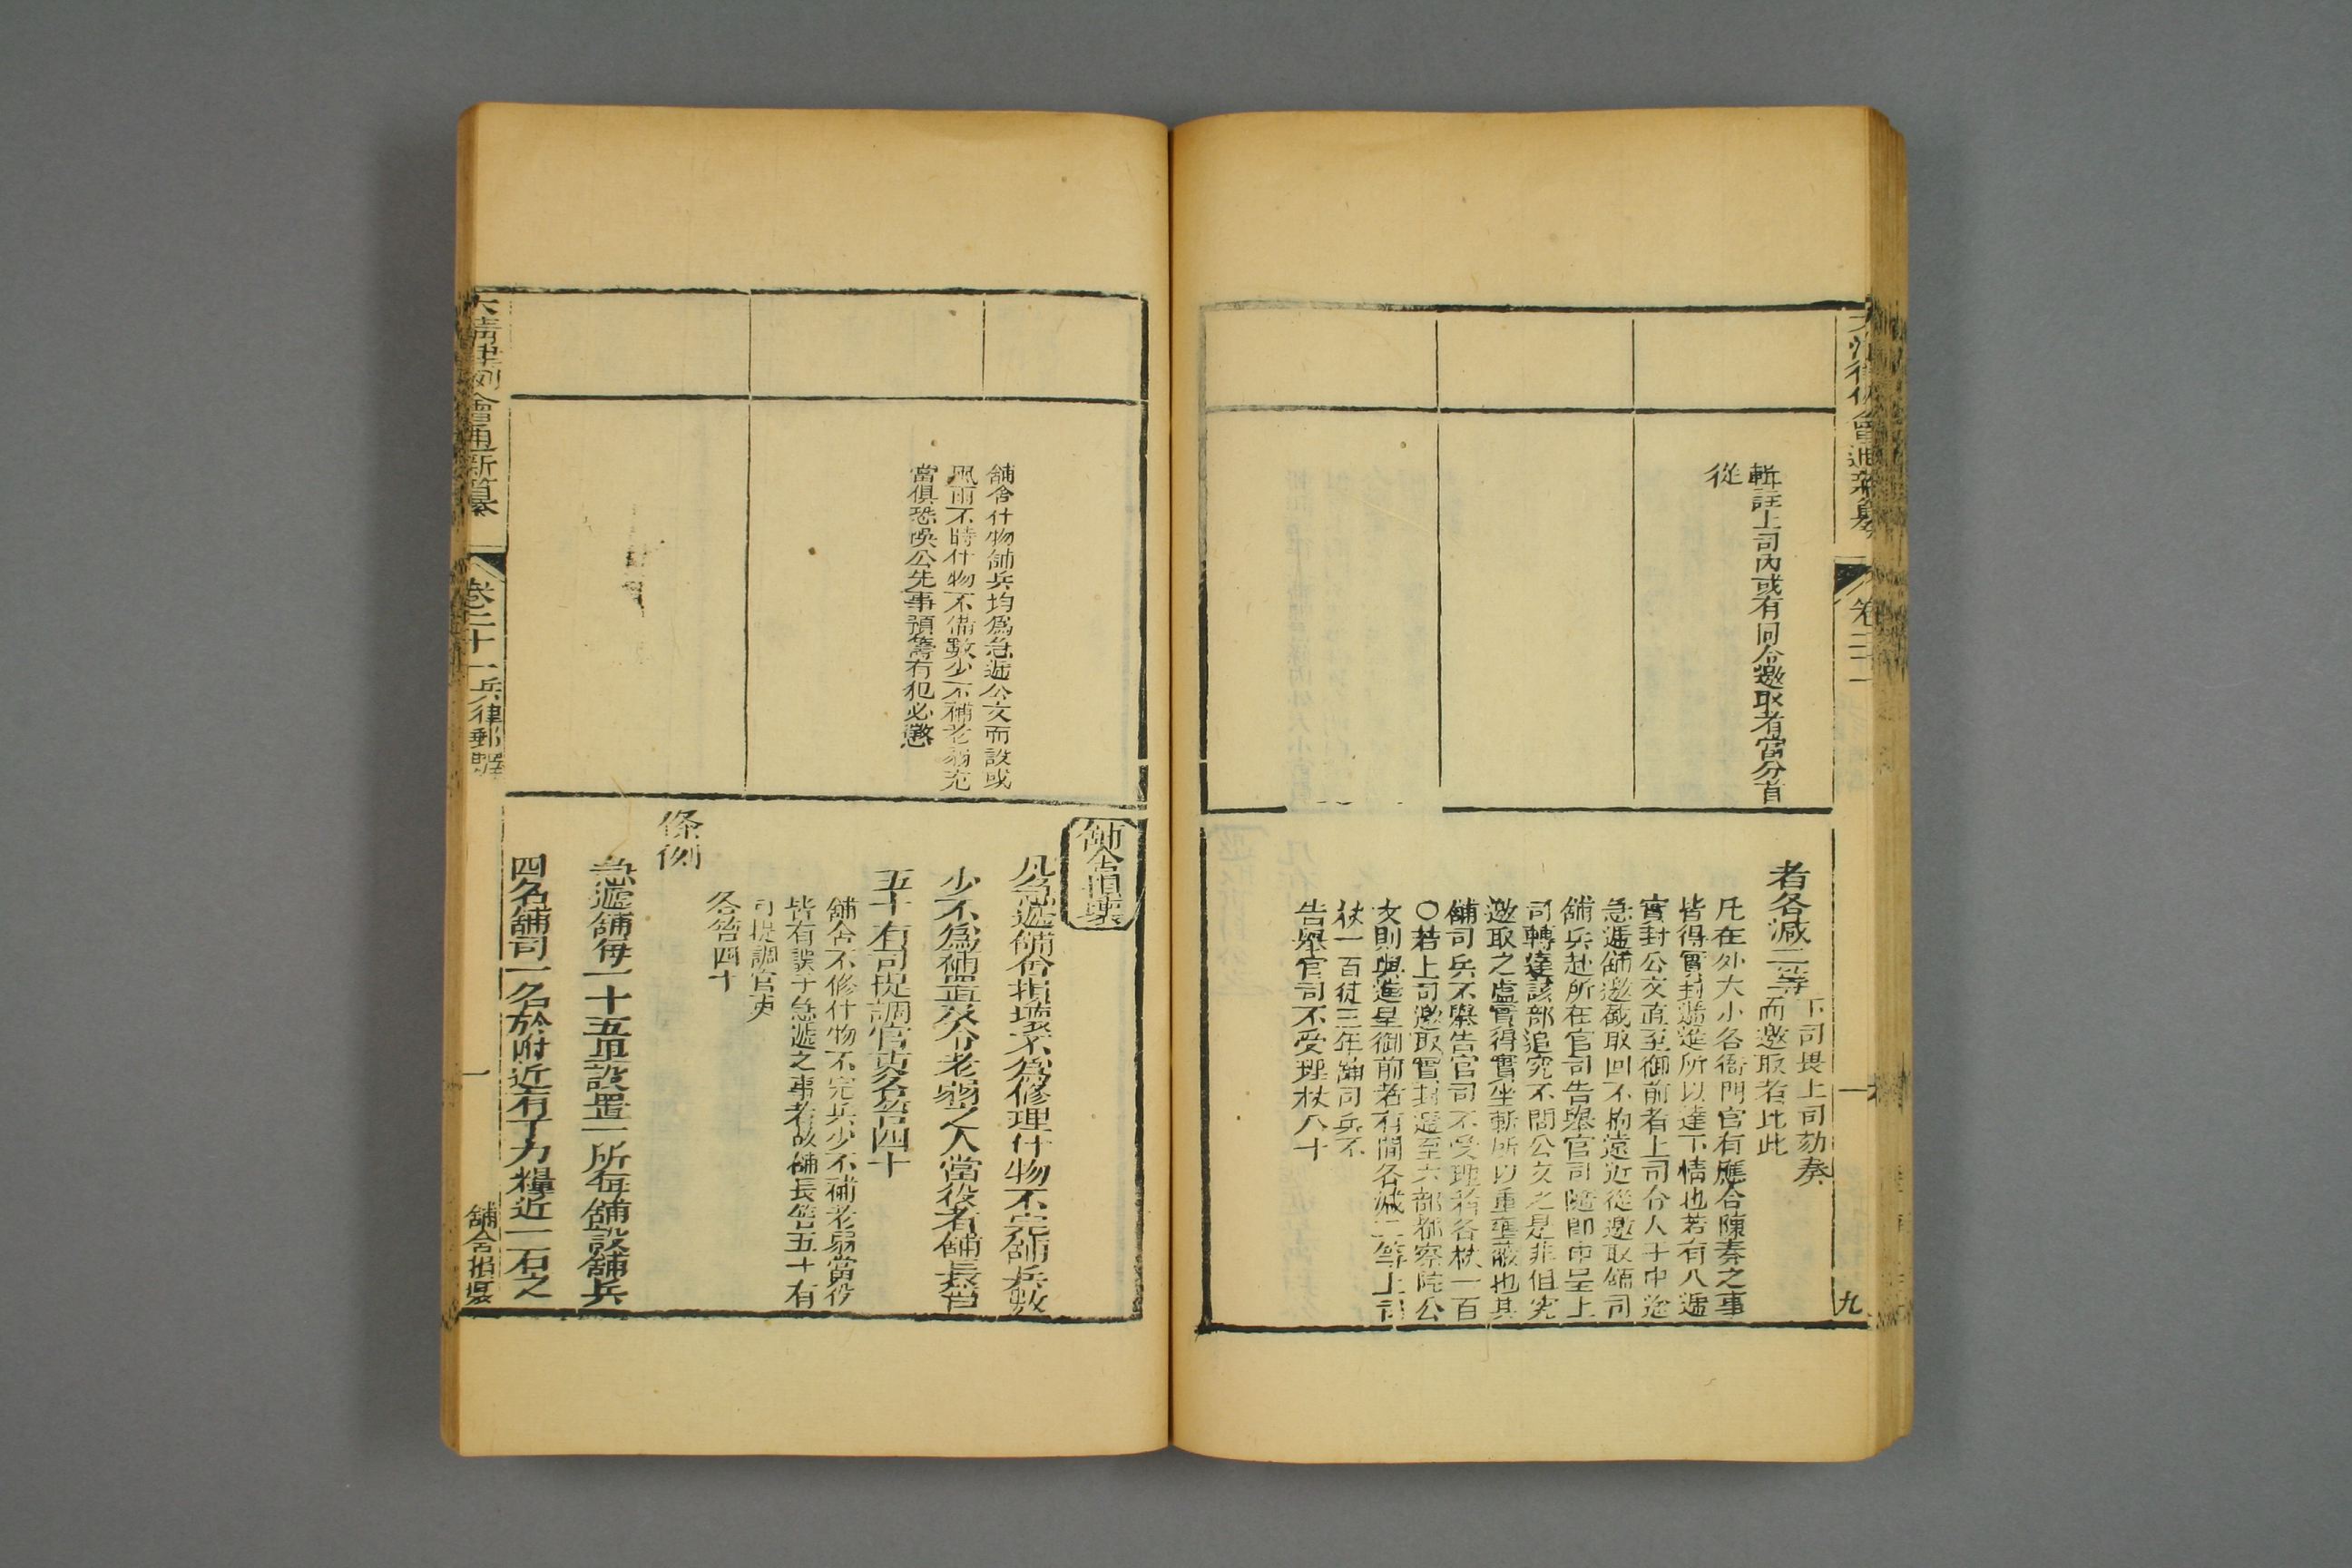 大清律例會通新纂
卷二十一
九
輯註上司內或有同僉邀取者當分首
從
者各減二等下司畏上司劾奏
而邀取者比此
凡在外大小各衙門官有應合陳奏之事
皆得實封遞進所以達下情也若有入遞
實封公文直至御前者上司令人于中途
急遞舖邀截取回不拘遠近從邀取舖司
舖兵赴所在官司告舉官司隨卽申呈上
司轉達該部追究不問公文之是非但究
邀取之虛實得實坐斬所以重壅蔽也其
舖司兵不舉告官司不受理者各杖一百
○若上司邀取實封遞至六部都察院公
文則與進呈御前者有間各減二等上司
杖一百徒三年舖司兵不
告舉官司不受理杖八十
舖舍損壞
舖舍什物舖兵均爲急遞公文而設或
風雨不時什物不備數少不補老弱充
當俱恐悞公先事預籌有犯必懲
凡急遞舖舍損壞不爲修理什物不完舖兵數
少不爲補置及令老弱之人當役者舖長笞
五十有司提調官吏各笞四十
舖舍不修什物不完兵少不補老弱當役
皆有誤于急遞之事者故舖長笞五十有
司提調官吏
各笞四十
條例
急遞舖每一十五里設置一所每舖設舖兵
四名舖司一名於附近有丁力糧近一石之
大清律例會通新纂
卷二十一兵律郵驛
一
舖舍損壞